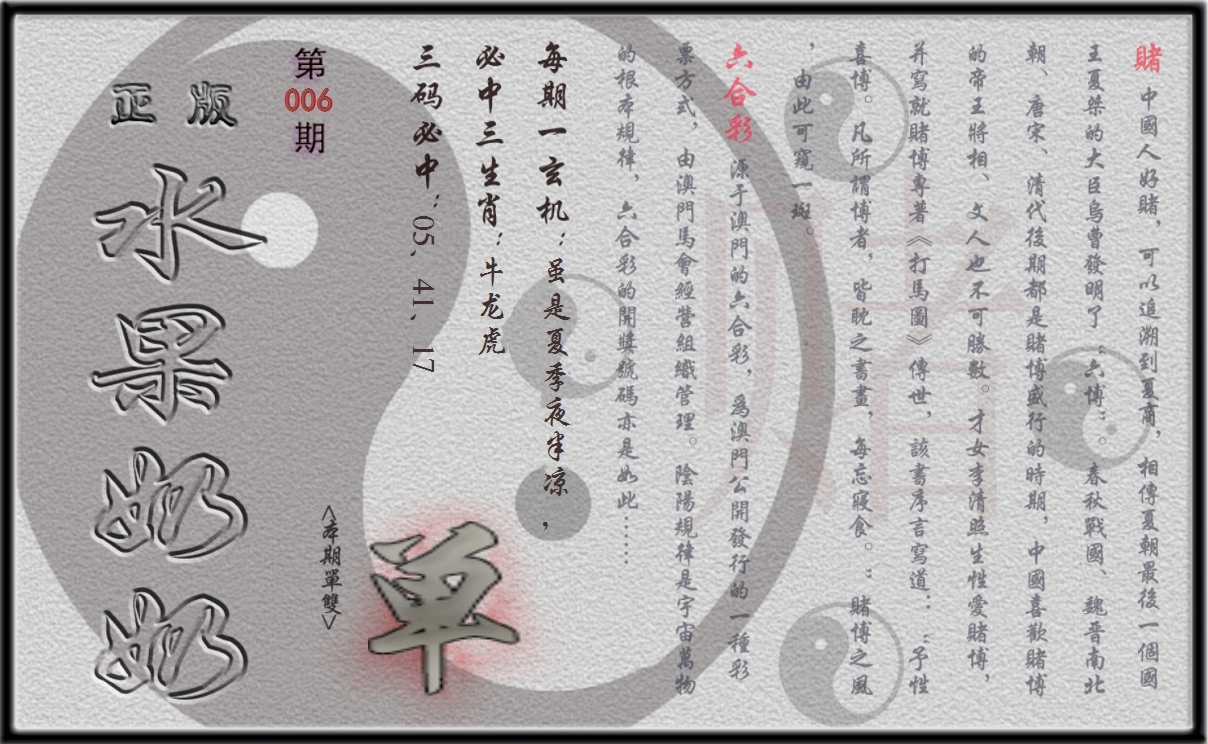 賭 中國人好賭，可以追溯到夏商，相傳夏朝最後一個國
王夏桀的大臣烏曹發明了“六博”。春秋戰國、魏晉南北
朝、唐宋、清代後期都是賭博盛行的時期，中國喜歡賭博
的帝王將相、文人也不可勝數。才女李清照生性愛賭博，
并寫就賭博專著《打馬圖》傳世，該書序言寫道：“予性
喜博。凡所謂博者，皆耽之書畫，每忘寢食。”賭博之風
，由此可窺一斑。
六合彩 源于澳門的六合彩，爲澳門公開發行的一種彩
票方式，由澳門馬會經營組織管理。陰陽規律是宇宙萬物
的根本規律，六合彩的開獎號碼亦是如此……
每期一玄机：虽是夏季夜半凉，
必中三生肖：牛龙虎
三码必中：05、41、17
單
<本期單雙>
第
006
期
正版
水果奶奶
赌